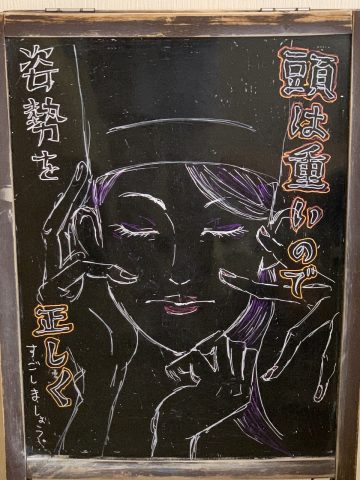 頭は重いので
姿勢を
正しく
すごしましょう。